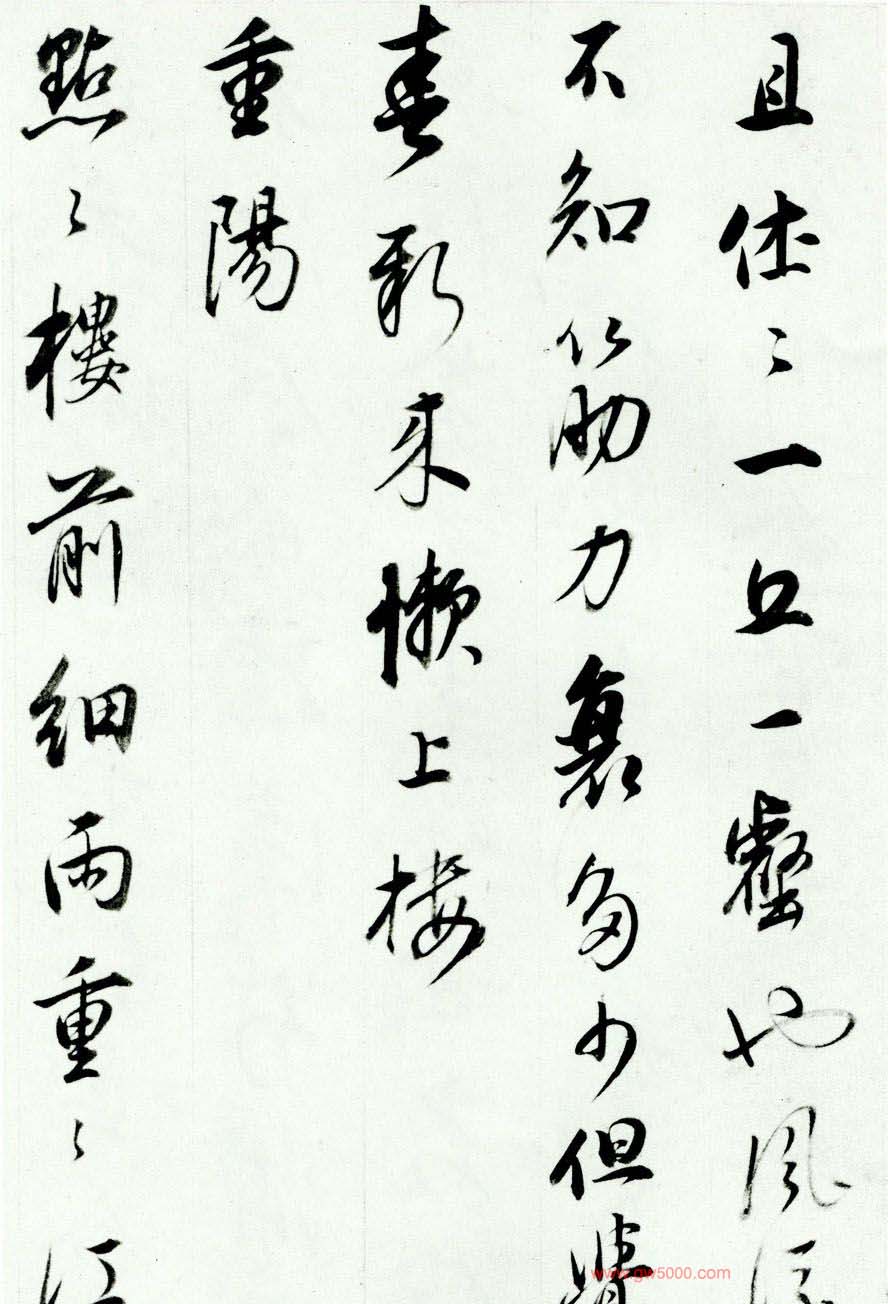 且休〻一丘一壑也風
不知筋力衰多少但
新来懶上楼
重陽
點〻樓前細雨重〻江
www.gw5000.com